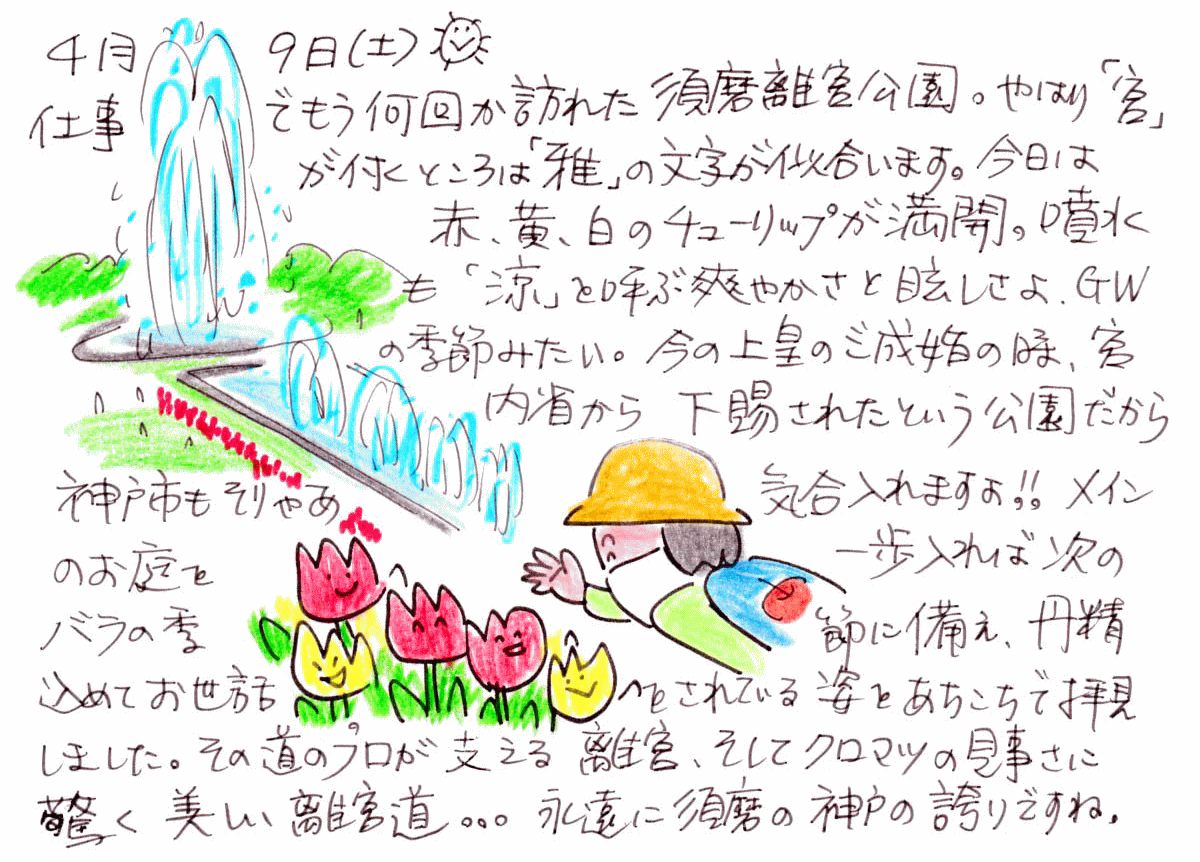 4月9日(土)
仕事でもう何回か訪れた須磨離宮公園。やはり「宮」
が付くところは「雅」の文字が似合います。今日は
赤、黄、白のチューリップが満開。噴水
も「涼」を呼ぶ爽やかさと眩しさよ、GW
の季節みたい。今の上皇のご成婚の際、宮
内省から下賜されたという公園だから
神戸市もそりゃあ気合入れますよ!!メイン
のお庭を一歩入れば次の
バラの季節に備え、丹精
込めてお世話をされている姿をあちこちで拝見
しました。その道のプロが支える離宮、そしてクロマツの見事さに
驚く美しい離宮道...永遠に須磨の神戸の誇りですね。